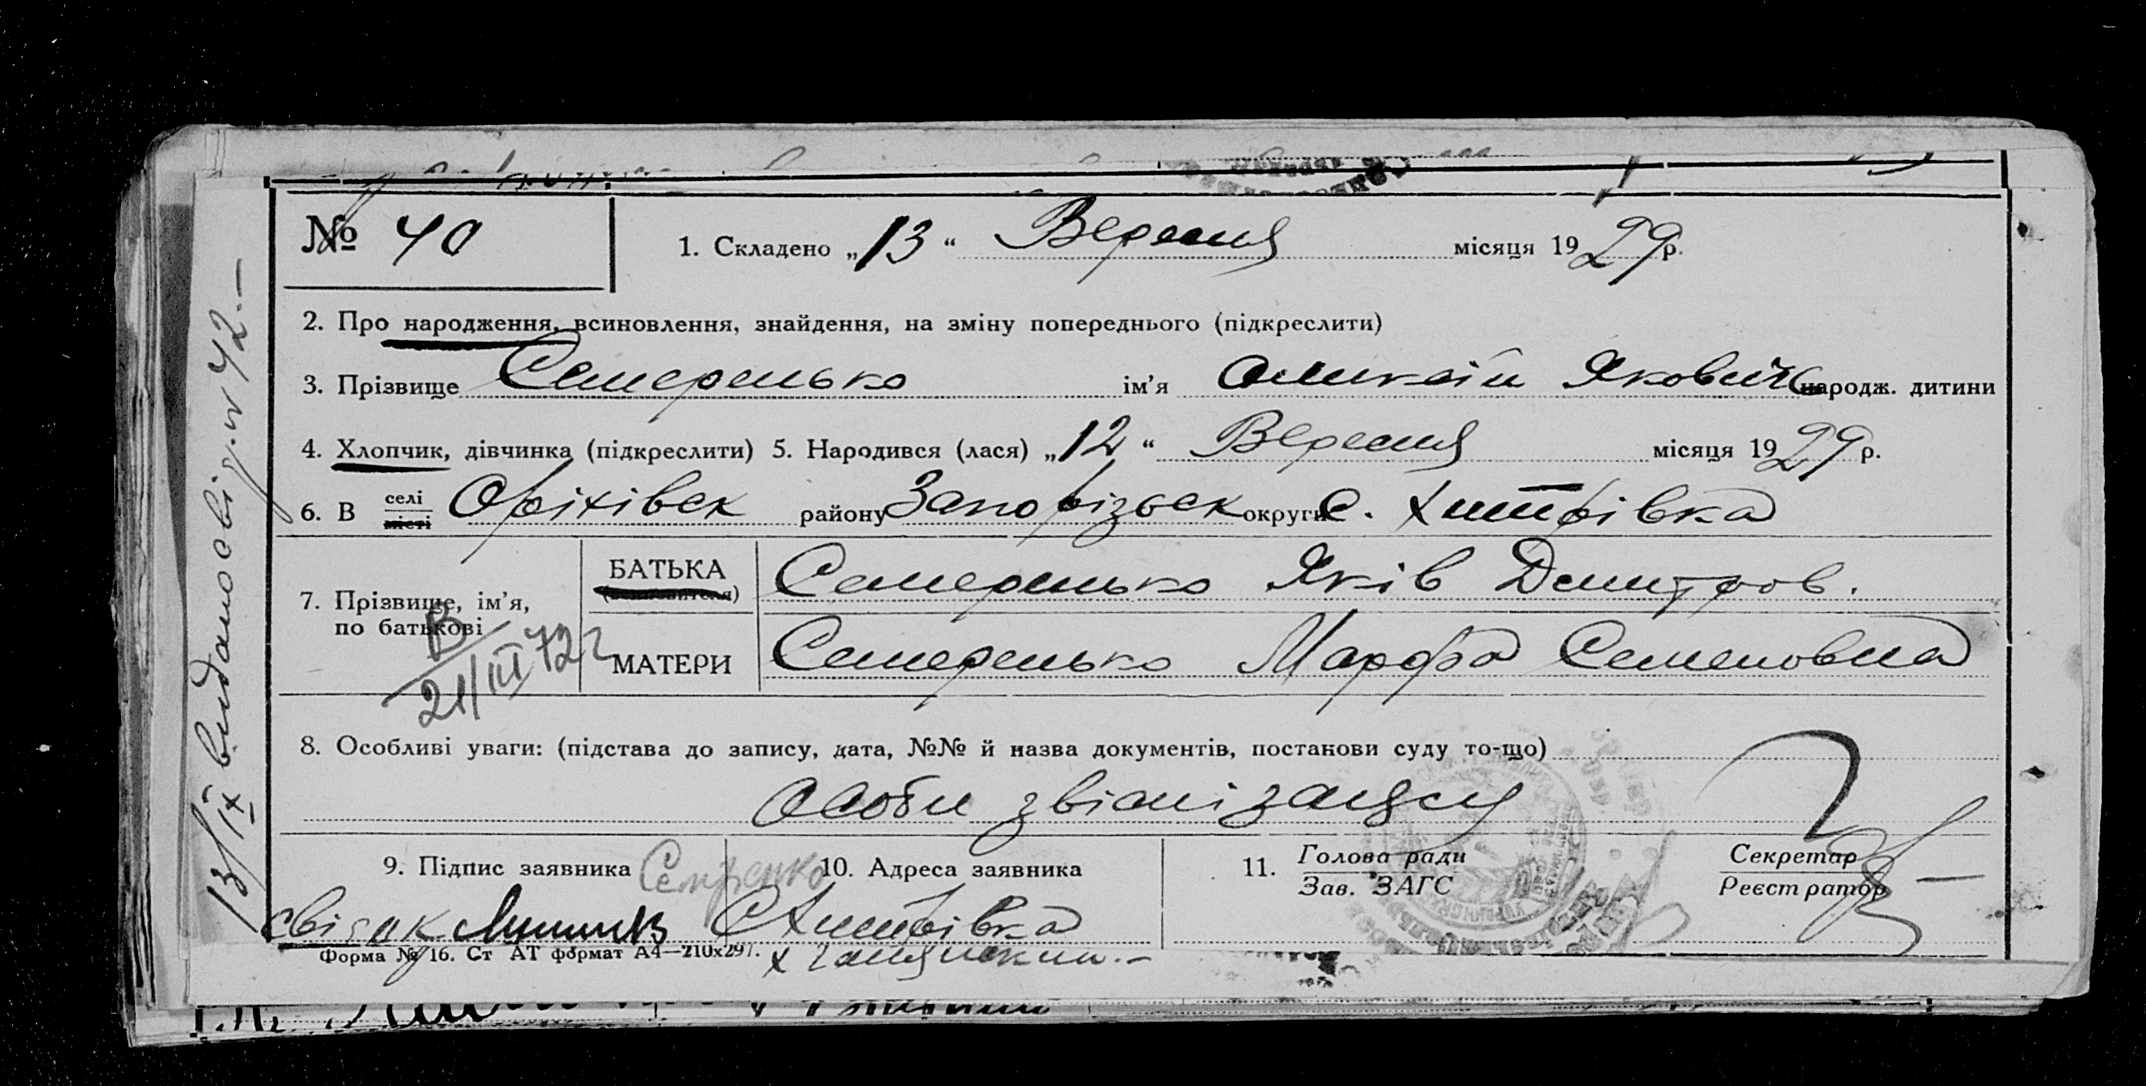 № 40
1. Складено „13“ Вересня місяця 1929 р.
2. Про народження, всиновлення, знайдення, на зміну попереднього (підкреслити)
3. Прізвище Семеренько ім’я Олексій Якович народж. дитини
4. Хлопчик, дівчинка (підкреслити) 5. Народився (лася) „12“ Вересня місяця 1929 р.
6. В селі місті Оріхівск району Запорізьск округи с. Хитрівка
7. Прізвище, ім’я, по батькові
БАТЬКА Семеренько Яків Дмитров.
МАТЕРИ Семеренько Марфа Семеновна
В 21/III 72 г
8. Особливі уваги: (підстава до запису, дата, №№ й назва документів, постанови суду то-що)
особи
9. Підпис заявника
10. Адреса заявника
11. Голова ради
Зав. ЗАГС
Секретар
Реєстратор
свідок
С Хитрівка
Форма № 16. Ст АТ формат А4—210х297.
13/IX видано 42.—